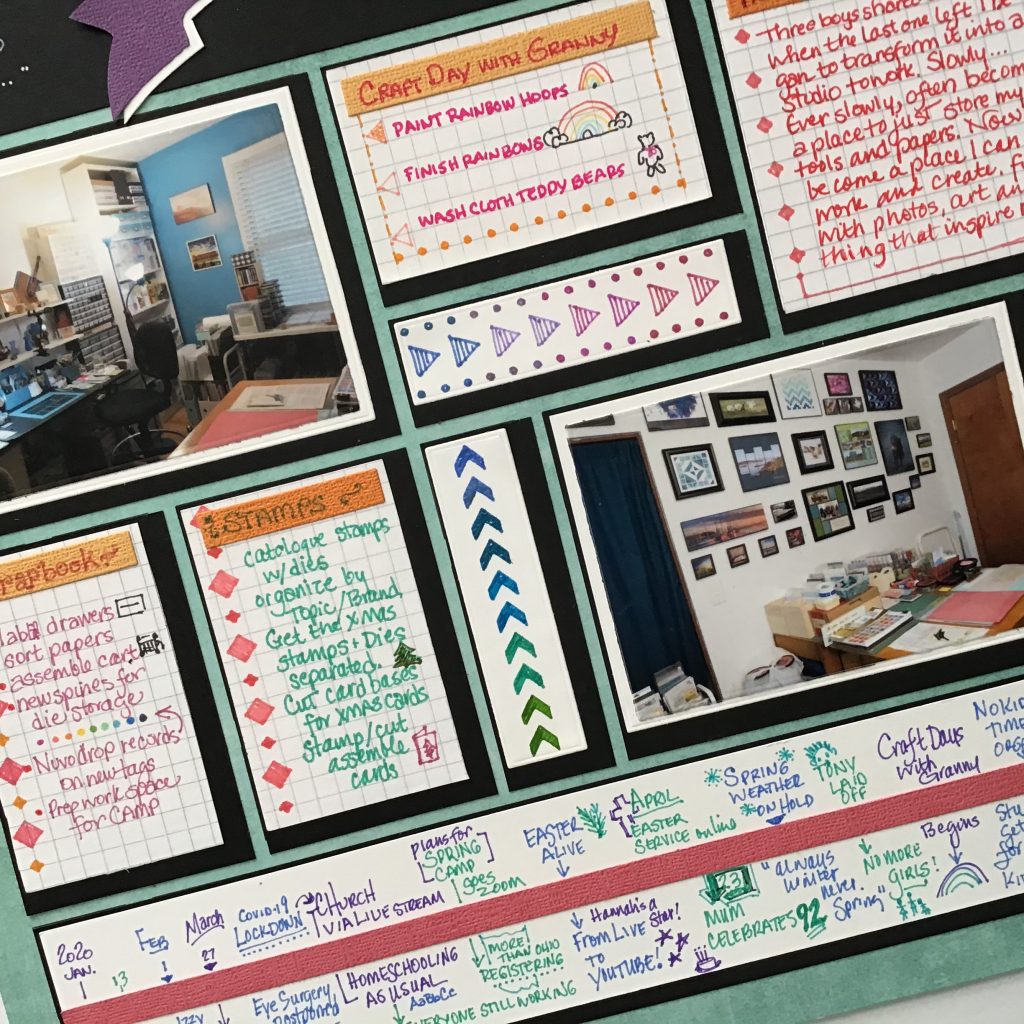 CRAFT DAY WITH GRANNY
PAINT RAINBOW HOOPS
FINISH RAINBOWS
WASH CLOTH TEDDY BEARS
Three boys shared
when the last one left I be
gan to transform it into a
studio to work. Slowly...
Ever slowly, often becom
a place to just store my
tools and papers. Now
become a place I can
work and create, fi
with photos, art an
thing that inspire m
rapbook
label drawers
sort papers
assemble cart
new spines for
die storage
Nuvo drop records
on new tags
Prep work space
for CAMP
STAMPS
Catalogue stamps
w/dies
organize by
Topic/Brand
Get the xmas
stamps + Dies
separated.
Cut card bases
for xmas cards
stamp/cut
assemble
cards
2020
JAN.
1
13
FEB
1
March
27
COVID-19
LOCKDOWN
CHURCH
VIA LIVE STREAM
plans for
SPRING
CAMP
goes
ZOOM
EASTER
ALIVE
APRIL
EASTER
SERVICE online
SPRING
WEATHER
ON HOLD
TONY
LAID
OFF
Craft Days
with
Granny
NO KID
TIME
ORG
Izzy
Eye Surgery
Postponed
HOMESCHOOLING
AS USUAL
AaBbCc
EVERYONE STILL WORKING
MORE
THAN OHIO
REGISTERING
Hannah is a Star!
From LIVE
TO
YOUTUBE!
23
MUM
CELEBRATES 92
"always
winter
never
Spring"
NO MORE
GIRLS!
Begins
Stu
Get
for
KI